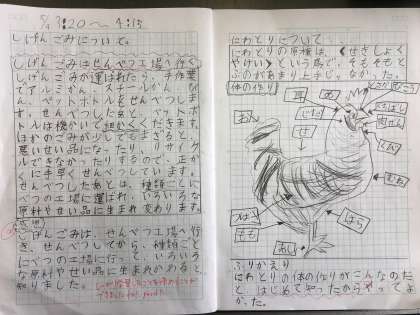 5/9 3:20〜4:15
しげんごみについて。
しげんごみはせんべつ工場へ行く。
しげんごみが運ばれたら、手作業
でアルミかん、スチールかん、び
ん、ペットボトルをせんべつしま
す。せんべつしたあと、ペットボ
トルは機かいで細かくくだきます。
ほかのごみがリしてもまざると、
悪いせい品になったり、リサイク
ルできなかったりするので、正か
くに手早くせんべつしています。
せんべつしたあとは、種類ごとに
べつの工場に運ばれ、いろいろな
原料やせい品に生まれ変わります。
しげんごみは、せんべつ工場へ行
き、せんべつしてから、種類ごと
にべつの工場に行って、いろいろ
な原料やせい品に生まれかわると
知りました。
にわとりについて
にわとりの原種は、くせきしょく
やけい>という鳥で、そもそもと
ぶのがあまり上手じゃなかった。
体の作り
耳
め
くび
せ
おん
つばさ
もも
あし
はら
むね
ふりかえり
にわとりの体の作りがこんなのだ
と、はじめて知ったからやってよ
かった。